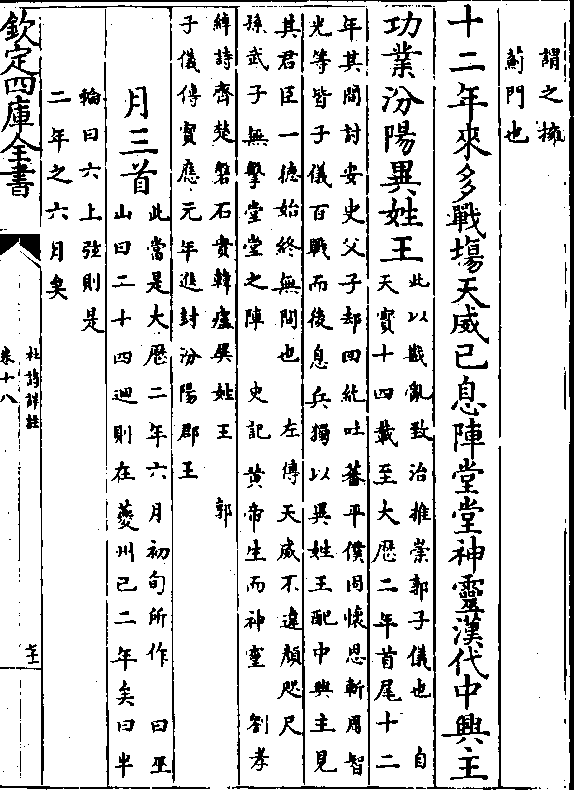 謂之擁
薊門也
十二年來多戰場天威已息陣堂堂神靈漢代中興主
功業汾陽異姓王
此以戡亂致治推崇郭子儀也　自
天寳十四載至大歴二年首尾十二
年其間討安史父子却回紇吐蕃平僕固懷恩斬周智
光等皆子儀百戰而後息兵獨以異姓王配中興主見
其君臣一德始終無間也　左傳天威不違顔咫尺
孫武子無擊堂堂之陣　史記黄帝生而神靈　劉孝
綽詩齊楚磐石貴韓盧異姓王　郭
子儀傳寳應元年進封汾陽郡王
月三首
此當是大歴二年六月初旬所作　曰巫
山曰二十四迴則在夔州已二年矣曰半
輪曰六上弦則是
二年之六月矣
欽定四庫全書
杜詩詳註
卷十八